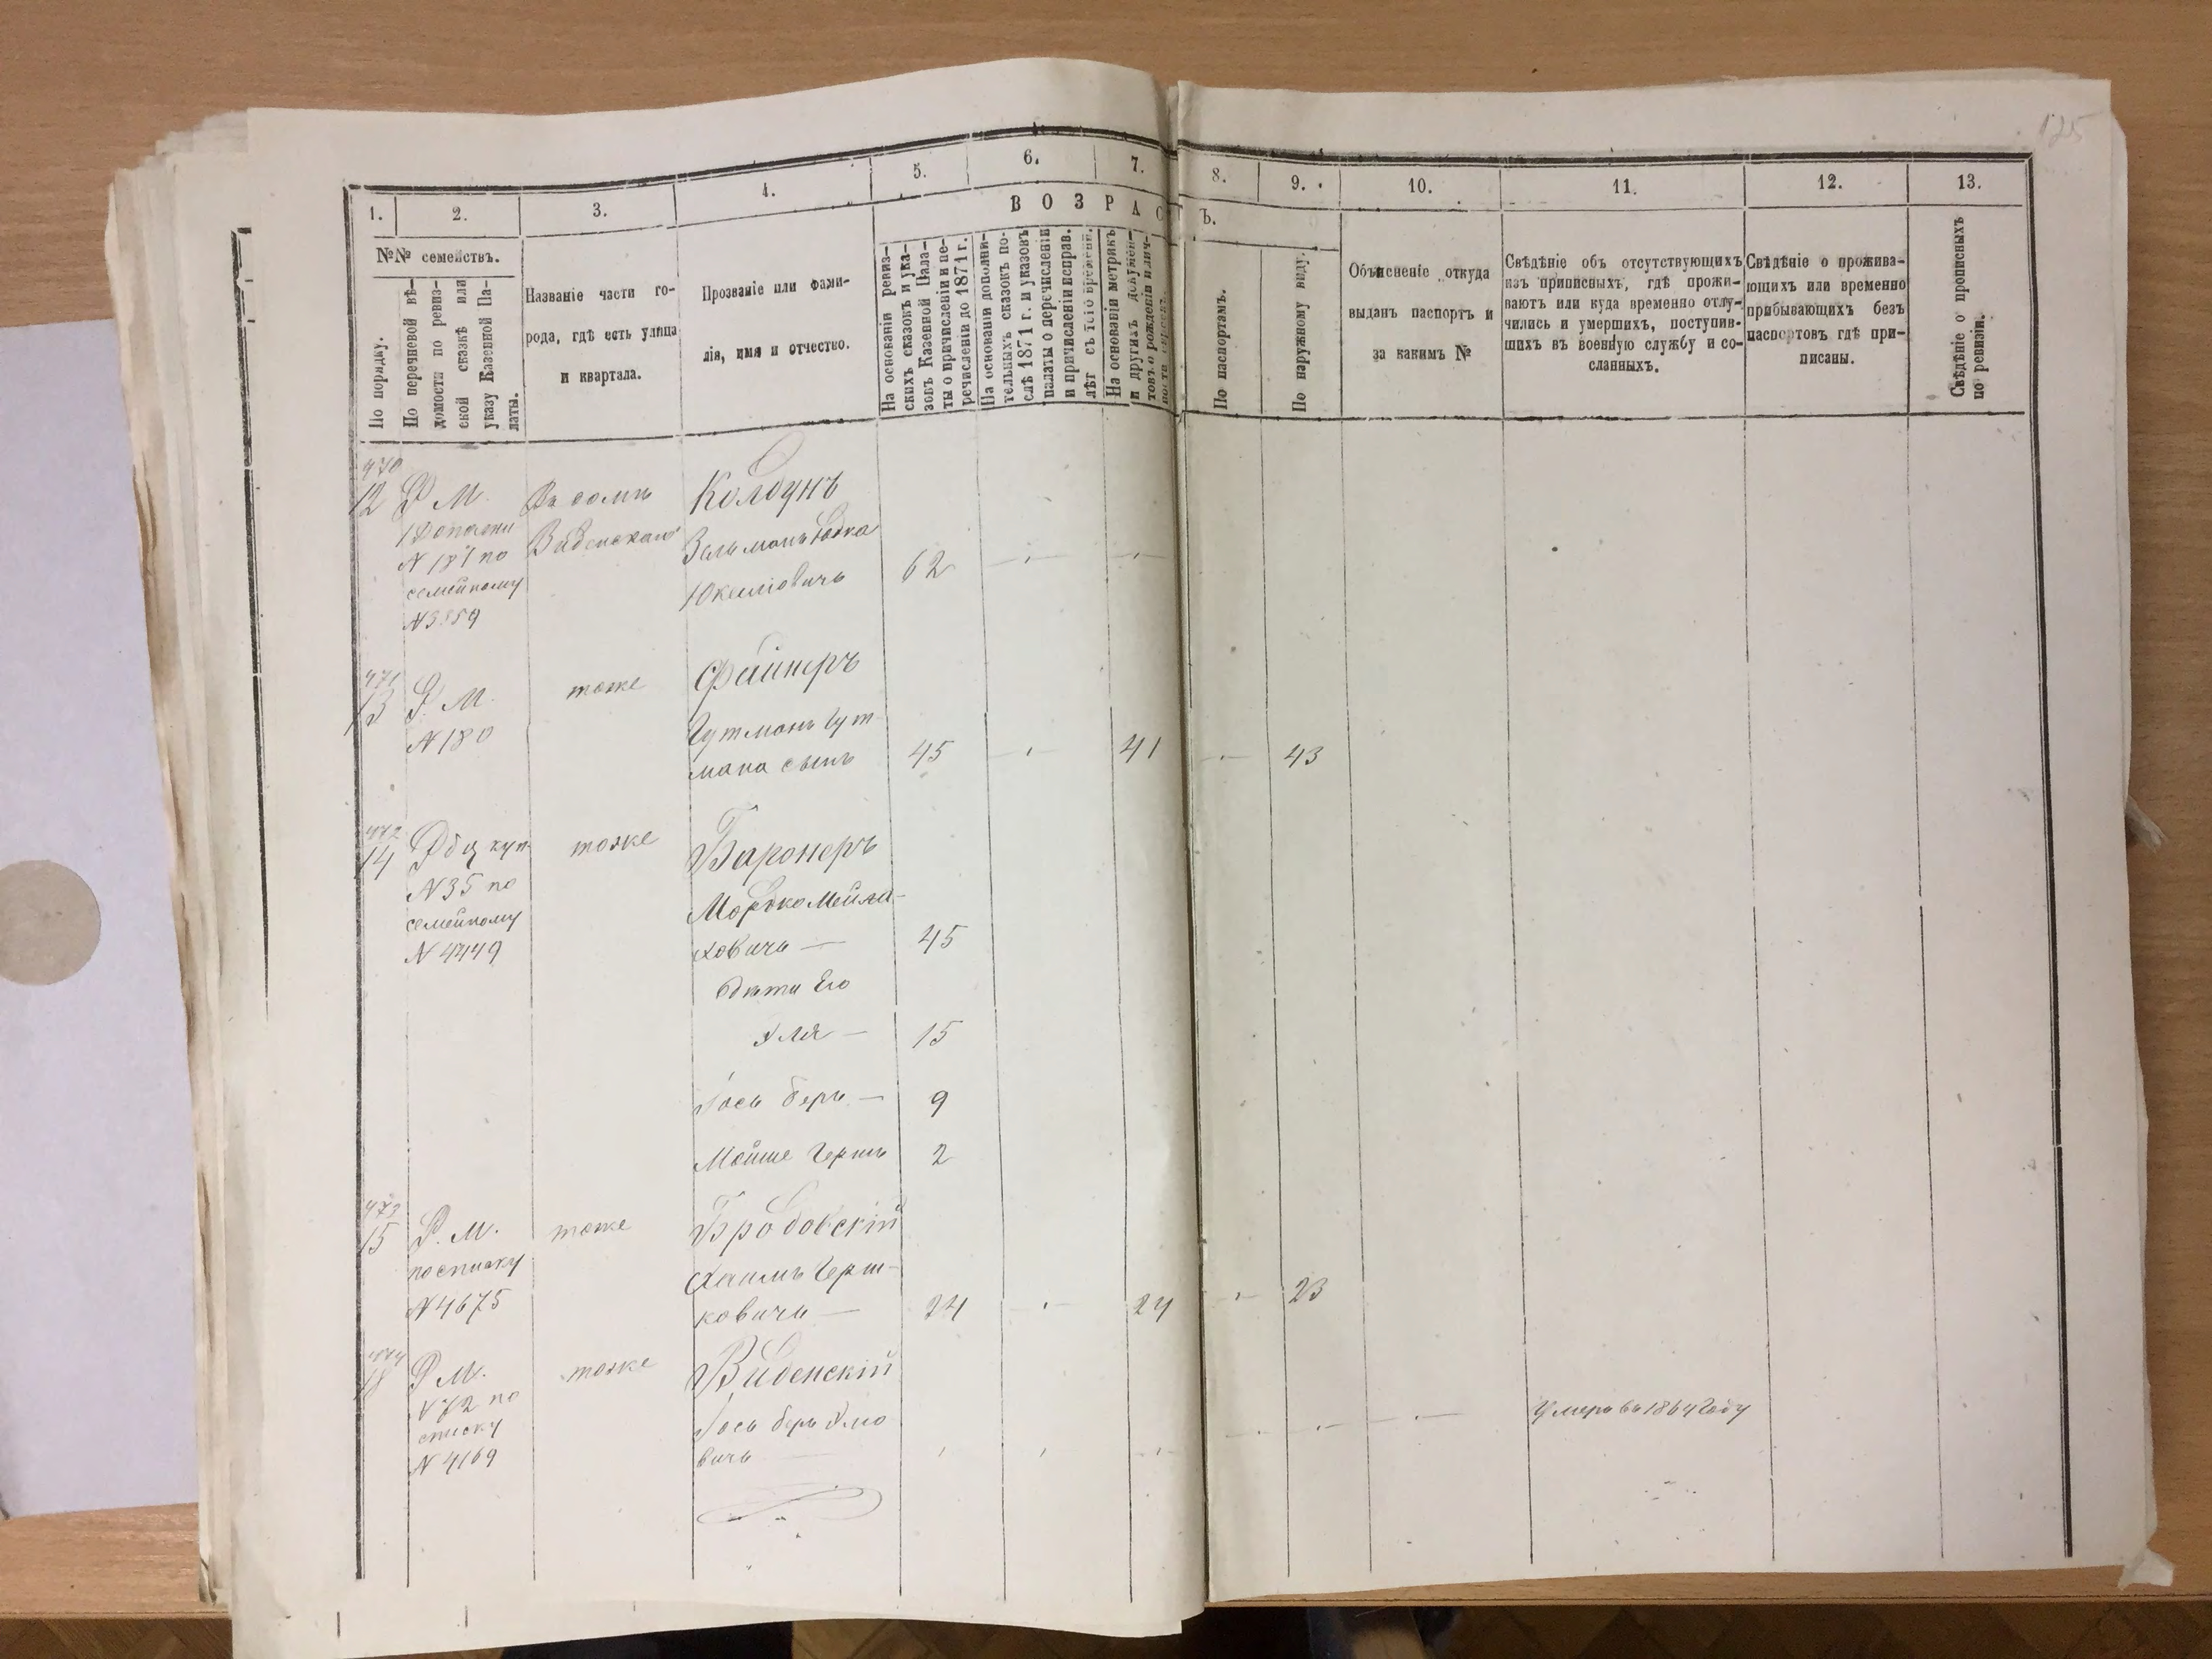 125
1.
2.
3.
4.
5.
6.
7.
8.
9.
10.
11.
12.
13.
ВОЗРАС
Ъ.
№№ семействъ.
По порядку.
По перечневой вѣ-
домости по ревиз-
ской сказкѣ или
указу Казенной Па-
латы.
Названіе части го-
рода, гдѣ есть улица
и квартала.
Прозваніе или фами-
лія, имя и отчество.
На основаніи ревиз-
скихъ сказокъ и ука-
зовъ Казенной Пала-
ты о причисленіи и пе-
речисленіи до 1871 г.
На основаніи дополни-
тельныхъ сказокъ по-
слѣ 1871 г. и указовъ
палаты о перечисленіи
и причисленіи исправ.
лѣт съ того времени.
На основаніи метрикъ
и другихъ докумен-
товъ о рожденіи и лич-
По паспортамъ.
По наружному виду.
Объясненіе откуда
выданъ паспортъ и
за какимъ №
Свѣдѣніе объ отсутствующихъ
изъ приписныхъ, гдѣ прожи-
ваютъ или куда временно отлу-
чились и умершихъ, поступив-
шихъ въ военную службу и со-
сланныхъ.
Свѣдѣніе о прожива-
ющихъ или временно
прибывающихъ безъ
паспортовъ гдѣ при-
писаны.
Свѣдѣніе о прописныхъ
по ревизіи.
470
12 Р М. Въ домѣ Колдунъ
N 181 по Виденскаго Зельманъ
семейному Юкелiовичъ 62 — —
N 3859
471
13 Р. М. тоже Файнеръ
N 180 Гутманъ Гут
мана сынъ 45 — 41 — 43
472
14 Р общ куп тоже Баронеръ
N 35 по Мордко Мейла-
семейному ховичъ — 45
N 4449
Дѣти Его
Эля — 15
Iось Беръ — 9
Мойше Гершъ 2
473
15 Р. М. тоже Бродовскій
по списку Хаимъ Герш-
N 4675 ковичъ — 24 — 24 — 23
474
Р М. тоже Виденскій
N 72 по Iось Беръ Элiо
списку вичъ — Умеръ въ 1864 Году
N 4169